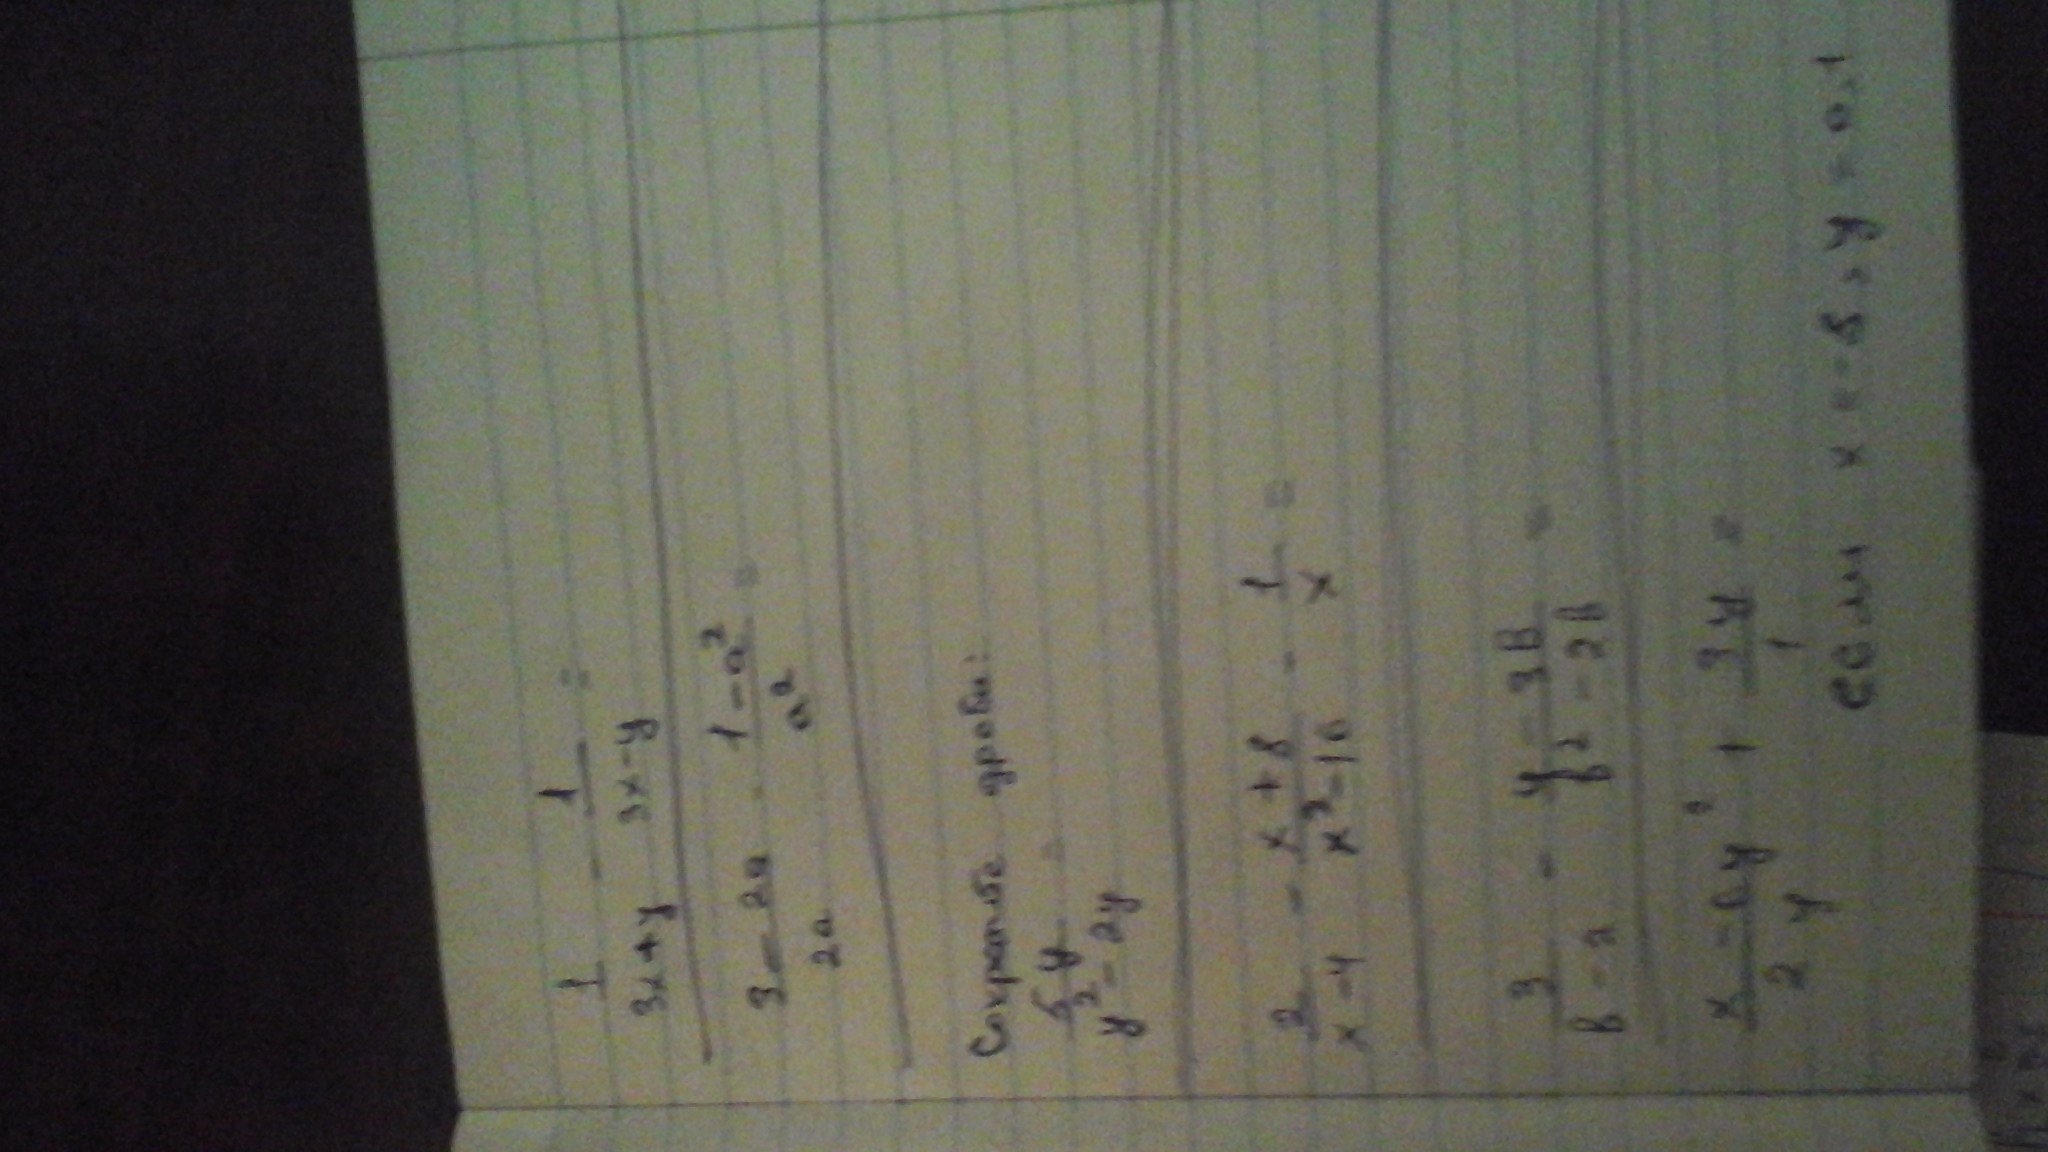 1/(3x+y) - 1/(3x-y) =
(3-2a)/2a - (1-a²)/a² =
Сократите дроби:
5y/(y²-2y) =
2/(x-4) - (x+8)/(x²-16) - 1/x =
3/(в-2) - (4-3в)/(в²-2в) =
(x-6y²)/2y + 3y/1 =
если x = -8, y = 0,1